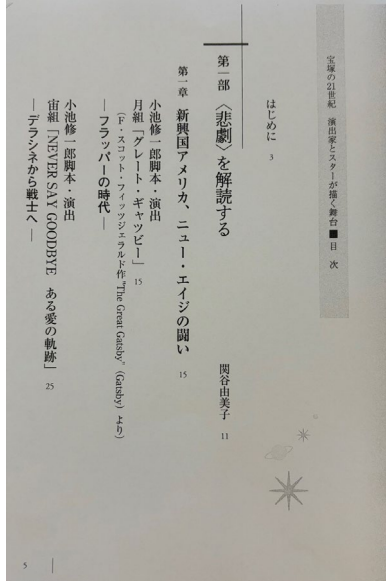 宝塚の21世紀 演出家とスターが描く舞台■目次
はじめに 3
第一部 〈悲劇〉を解読する 関谷由美子 11
第一章 新興国アメリカ、ニュー・エイジの闘い 15
小池修一郎脚本・演出
月組「グレート・ギャツビー」 15
(F・スコット・フィッツジェラルド作“The Great Gatsby”(Gatsby)より)
―フラッパーの時代―
小池修一郎脚本・演出
宙組「NEVER SAY GOODBYE ある愛の軌跡」 25
―デラシネから戦士へ―
5